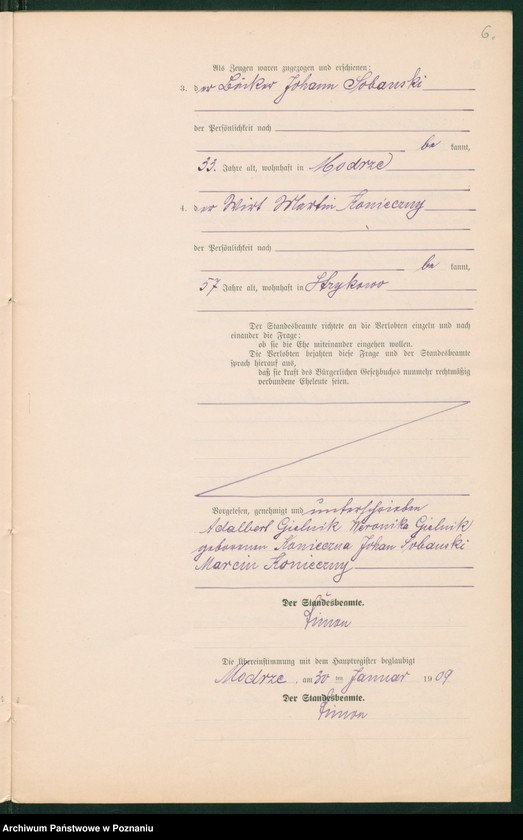 6.
Als Zeugen waren zugezogen und erschienen:
3. der Bäcker Johann Sobanski
der Persönlichkeit nach
be kannt,
33. Jahre alt, wohnhaft in Modrze
4. der Wirt Martin Konieczny
der Persönlichkeit nach
be kannt,
57 Jahre alt, wohnhaft in Strykowo
Der Standesbeamte richtete an die Verlobten einzeln und nach
einander die Frage:
ob sie die Ehe miteinander eingehen wollen.
Die Verlobten bejahten diese Frage und der Standesbeamte
sprach hierauf aus,
daß sie kraft des Bürgerlichen Gesetzbuches nunmehr rechtmäßig
verbundene Eheleute seien.
Vorgelesen, genehmigt und unterschrieben
Adalbert Gielnik Weronika Gielnik
geborenen Konieczna Johan Sobanski
Marcin Konieczny
Der Standesbeamte.
Simon
Die Übereinstimmung mit dem Hauptregister beglaubigt
Modrze, am 30 ten Januar 1909
Der Standesbeamte.
Simon
Archiwum Państwowe w Poznaniu